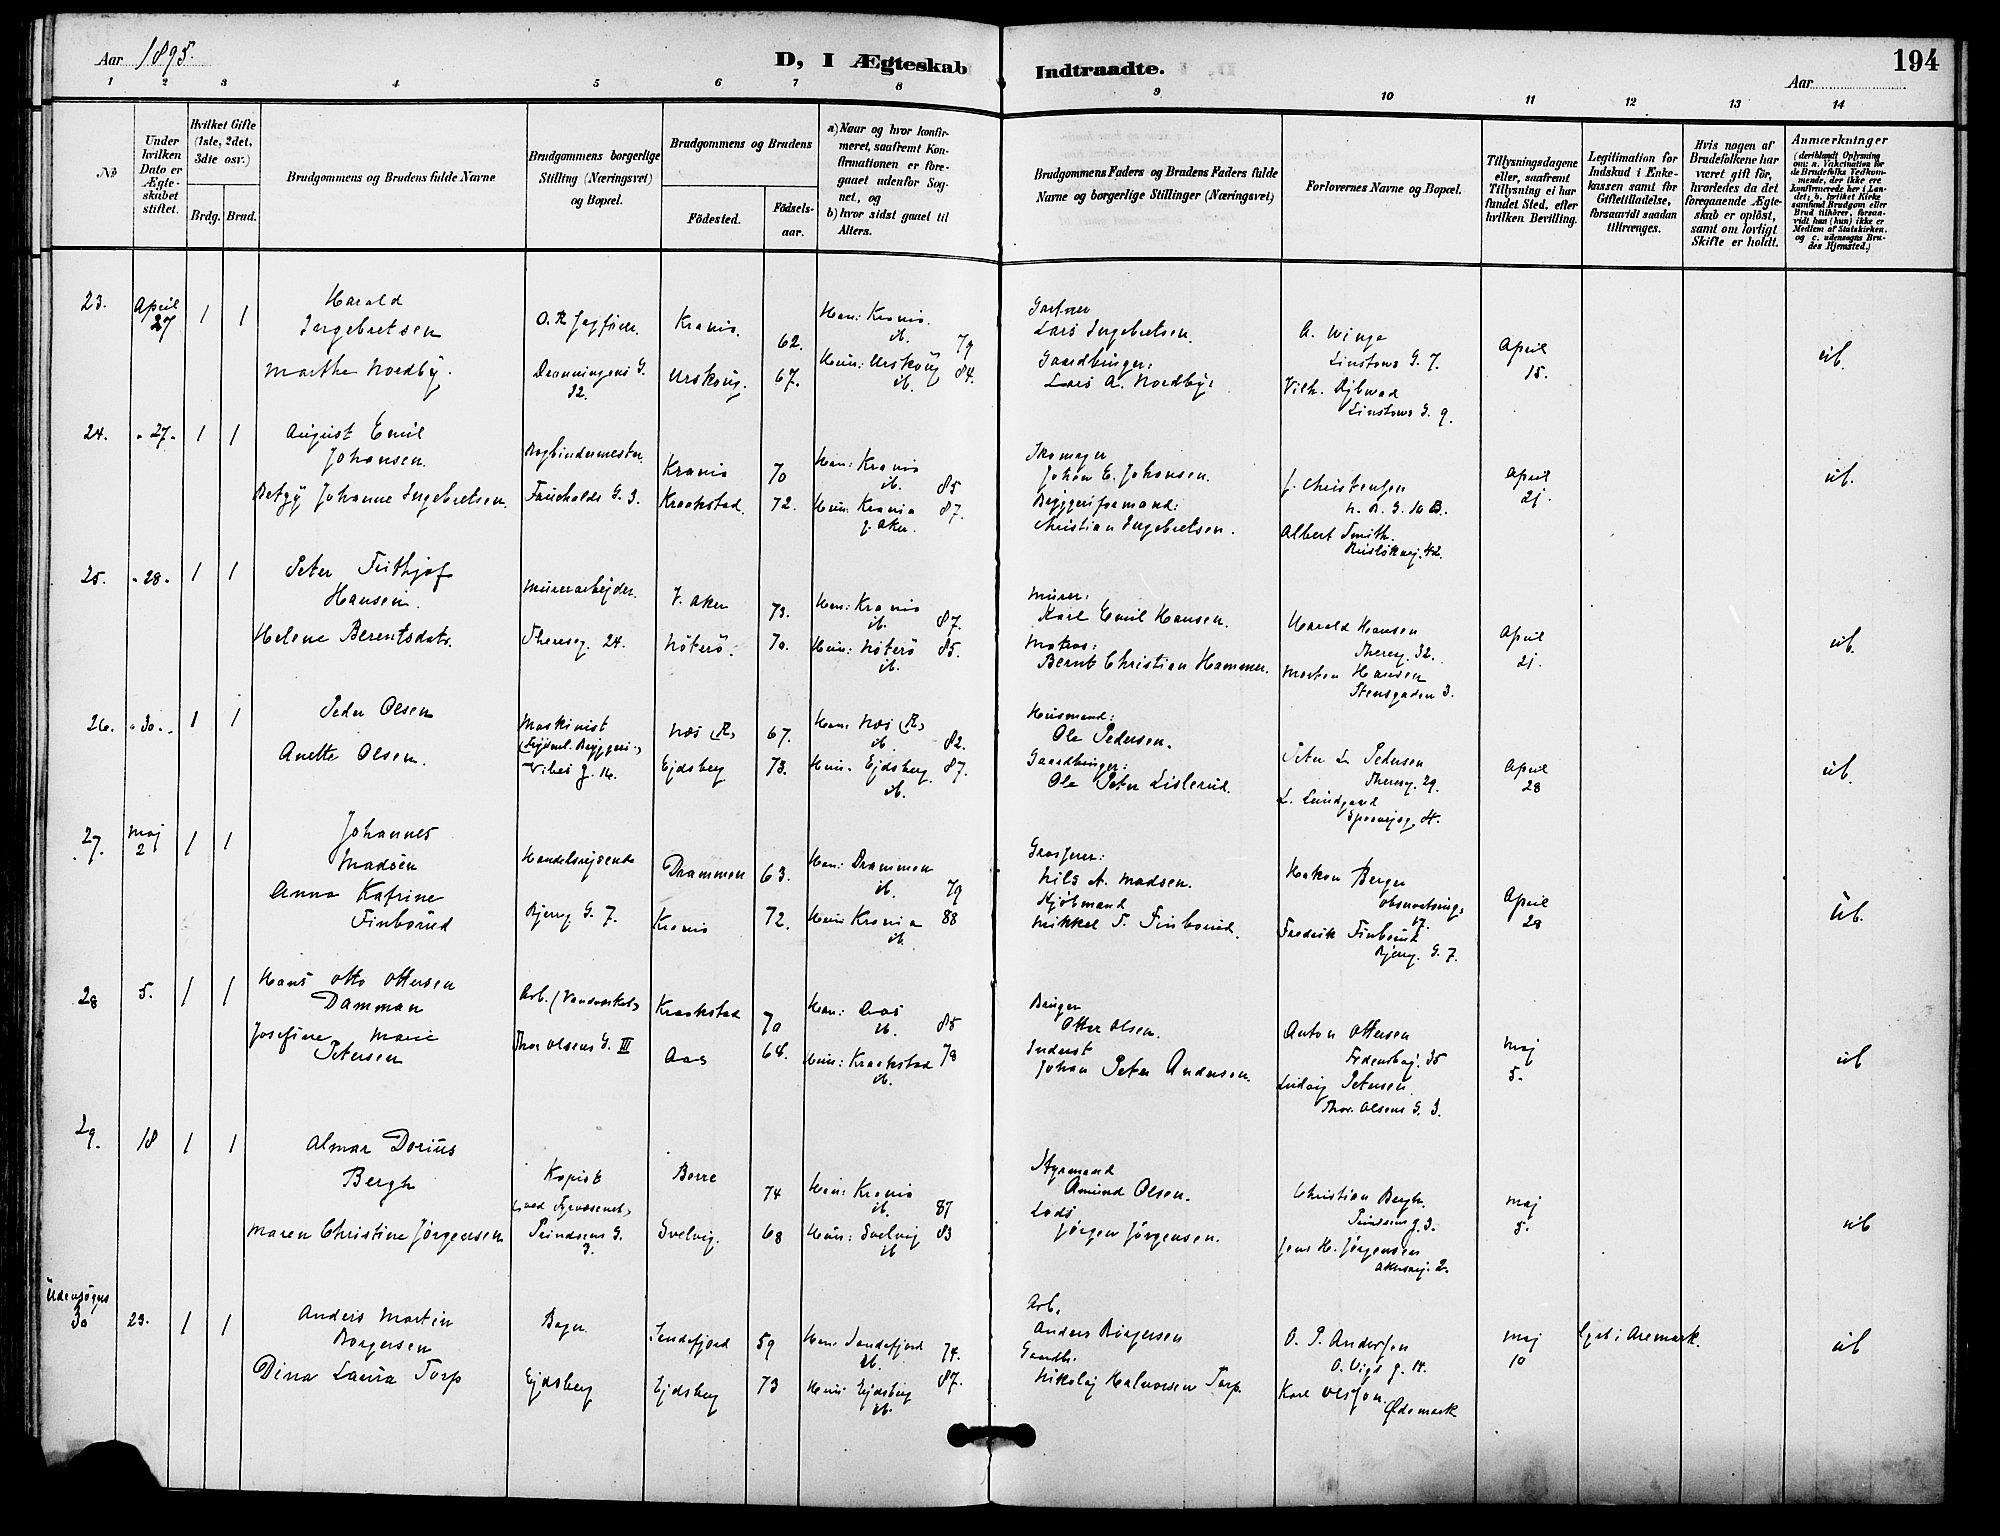 Aar 1895.
D, I Ægteskab Indtraadte.
194
Aar
1 2 3 4 5 6 7 8 9 10 11 12 13 14
No
Under hvilken Dato er Ægteskabet stiftet.
Hvilket Gifte (1ste, 2det, 3die osv.)
Brdg. Brud.
Brudgommens og Brudens fulde Navne
Brudgommens borgerlige Stilling (Næringsvei) og Bopæl.
Brudgommens og Brudens
Fødested.
Fødselsaar.
a) Naar og hvor konfirmeret, saafremt Konfirmationen er foregaaet udenfor Sognet, og
b) hvor sidst gaaet til Alters.
Brudgommens Faders og Brudens Faders fulde Navne og borgerlige Stillinger (Næringsvei)
Forlovernes Navne og Bopæl.
Tillysningsdagene eller, saafremt Tillysning ei har fundet Sted, efter hvilken Bevilling.
Legitimation for Indskud i Enkekassen samt for Giftetilladelse, forsaavidt saadan tiltrænges.
Hvis nogen af Brudefolkene har været gift før, hvorledes da det foregaaende Ægteskab er opløst, samt om lovligt Skifte er holdt.
Anmærkninger
(deriblandt Oplysning om: a. Vakcination for de Brudefolks Vedkommende, der ikke ere konfirmerede her i Landet; b. hvilket Kirkesamfund Brudgom eller Brud tilhører, forsaavidt han (hun) ikke er Medlem af Statskirken, og c. udensogns Brudes Hjemsted.)
23. April 27 1 1
Harald
Ingebretsen
Marthe Nordby.
Dronningens G. 32.
Krania. 62.
Urskoug. 67.
Han: Krania. ib. 79
Hun: Urskoug ib. 84.
Gartner
Lars Ingebretsen.
Gaardbruger:
Lars A. Nordby:
A. Winge
Linstows G. 7.
Vilh.
Linstows G. 9.
April 15.
ub.
24. " 27. " 1 1
August Emil
Johansen.
Betzy Johanne Ingebretsen.
Bogbindermester.
G. 3.
Krania 70
Kraakstad. 72.
Han: Krania ib. 85
Hun: Krania g. Aker. 87.
Skomager
Johan E. Johansen.
Bryggeriformand:
Christian Ingebretsen.
J. Christensen
G. 10 B.
Albert Smith.
42
April 21.
ub.
25. " 28. " 1 1
Peter Frithjof
Hansen.
Helene Berentsdatr.
Murerarbejder.
Theresg. 24.
V. Aker 73.
Nøterø. 70.
Han: Krania ib. 87.
Hun: Nøterø ib. 85.
Murer:
Karl Emil Hansen.
Matros:
Bernt Christian Hammer.
Harald Hansen
Theresg. 32.
Morten Hansen
Stensgaden 3.
April 21.
ub.
26. " 30. " 1 1
Peder Olsen
Anette Olsen.
Maskinist
Vibes g. 16.
Næs (R) 67.
Ejdsberg 73.
Han: Næs (R) ib. 82.
Hun: Ejdsberg ib. 87.
Husmand:
Ole Pedersen.
Gaardbruger:
Ole Peter Lislerud.
Peter L. Pedersen
Theresg. 29.
L. Lundgaard
April 28
ub.
27. Maj 2 1 1
Johannes
Madsen
Anna Katrine
Finborud
Handelsrejsende
Bjerrg. G. 7.
Drammen 63.
Krania 72.
Han: Drammen ib. 79
Hun: Krania ib. 88
Grosserer:
Nils A. Madsen.
Kjøbmand
Mikkel T. Finborud.
Hakon Berger
17.
Fredrik Finborud
Bjerrg. G. 7.
April 28
Ub.
28 5. 1 1
Hans Otto Ottersen
Damman
Josefine Marie
Petersen
Arb. (Vandværket)
Thor Olsens G. III
Kraakstad 70
Aas 68.
Han: Aas ib. 85
Hun: Kraakstad ib. 78
Bruger
Otter Olsen.
Inderst
Johan Peter Andersen.
Anton Ottersen
35
Ludvig Petersen
Thor. Olsens G. 3.
Maj 5.
ub
29. 18 1 1
Almar Dorius
Bergh
Maren Christine Jørgensen
Kopist
(ved Fyrvæsenet)
Prindsens G. 3.
Borre 74
Svelvig. 68
Han: Krania ib. 87
Hun: Svelvig ib 83
Styrmand
Amund Olsen.
Lods
Jørgen Jørgensen.
Christian Bergh.
Prindsens g. 3.
Jens H. Jørgensen
Akersvej. 2.
Maj 5.
ub
Udensogns
30 23. 1 1
Anders Martin
Borgersen
Dina Laura Torp
Bager
Ejdsberg
Sandefjord 59
Ejdsberg 73
Han: Sandefjord ib. 74.
Hun: Ejdsberg ib. 87.
Arb.
Anders Borgersen
Gaardb.
Nikolaj Halvorsen Torp.
O. P. Andersson
O. Vigs g. 14.
Karl Olsson.
Ødemark
Maj 10
lyst i Aremark.
ub